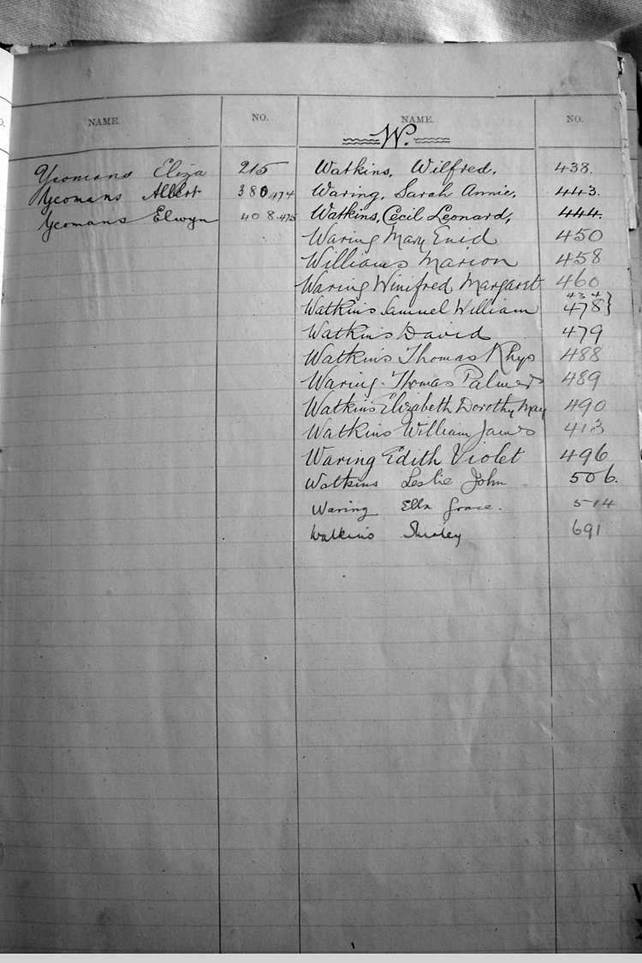 NAME. NO. NAME. NO.
W.
Yeomans Eliza 215
Yeomans Albert 380,474
Yeomans Elwyn 408,475
Watkins, Wilfred. 438.
Waring, Sarah Annie. 443.
Watkins, Cecil Leonard, 444.
Waring Mary Enid 450
Williams Marion 458
Waring Winifred Margaret 460
434
Watkins Samuel William 478}
Watkins David 479
Watkins Thomas Rhys 488
Waring Thomas Palmer 489
Watkins Elizabeth Dorothy May 490
Watkins William James 413
Waring Edith Violet 496
Watkins Leslie John 506.
Waring Ella Grace. 514
Watkins Shirley 691